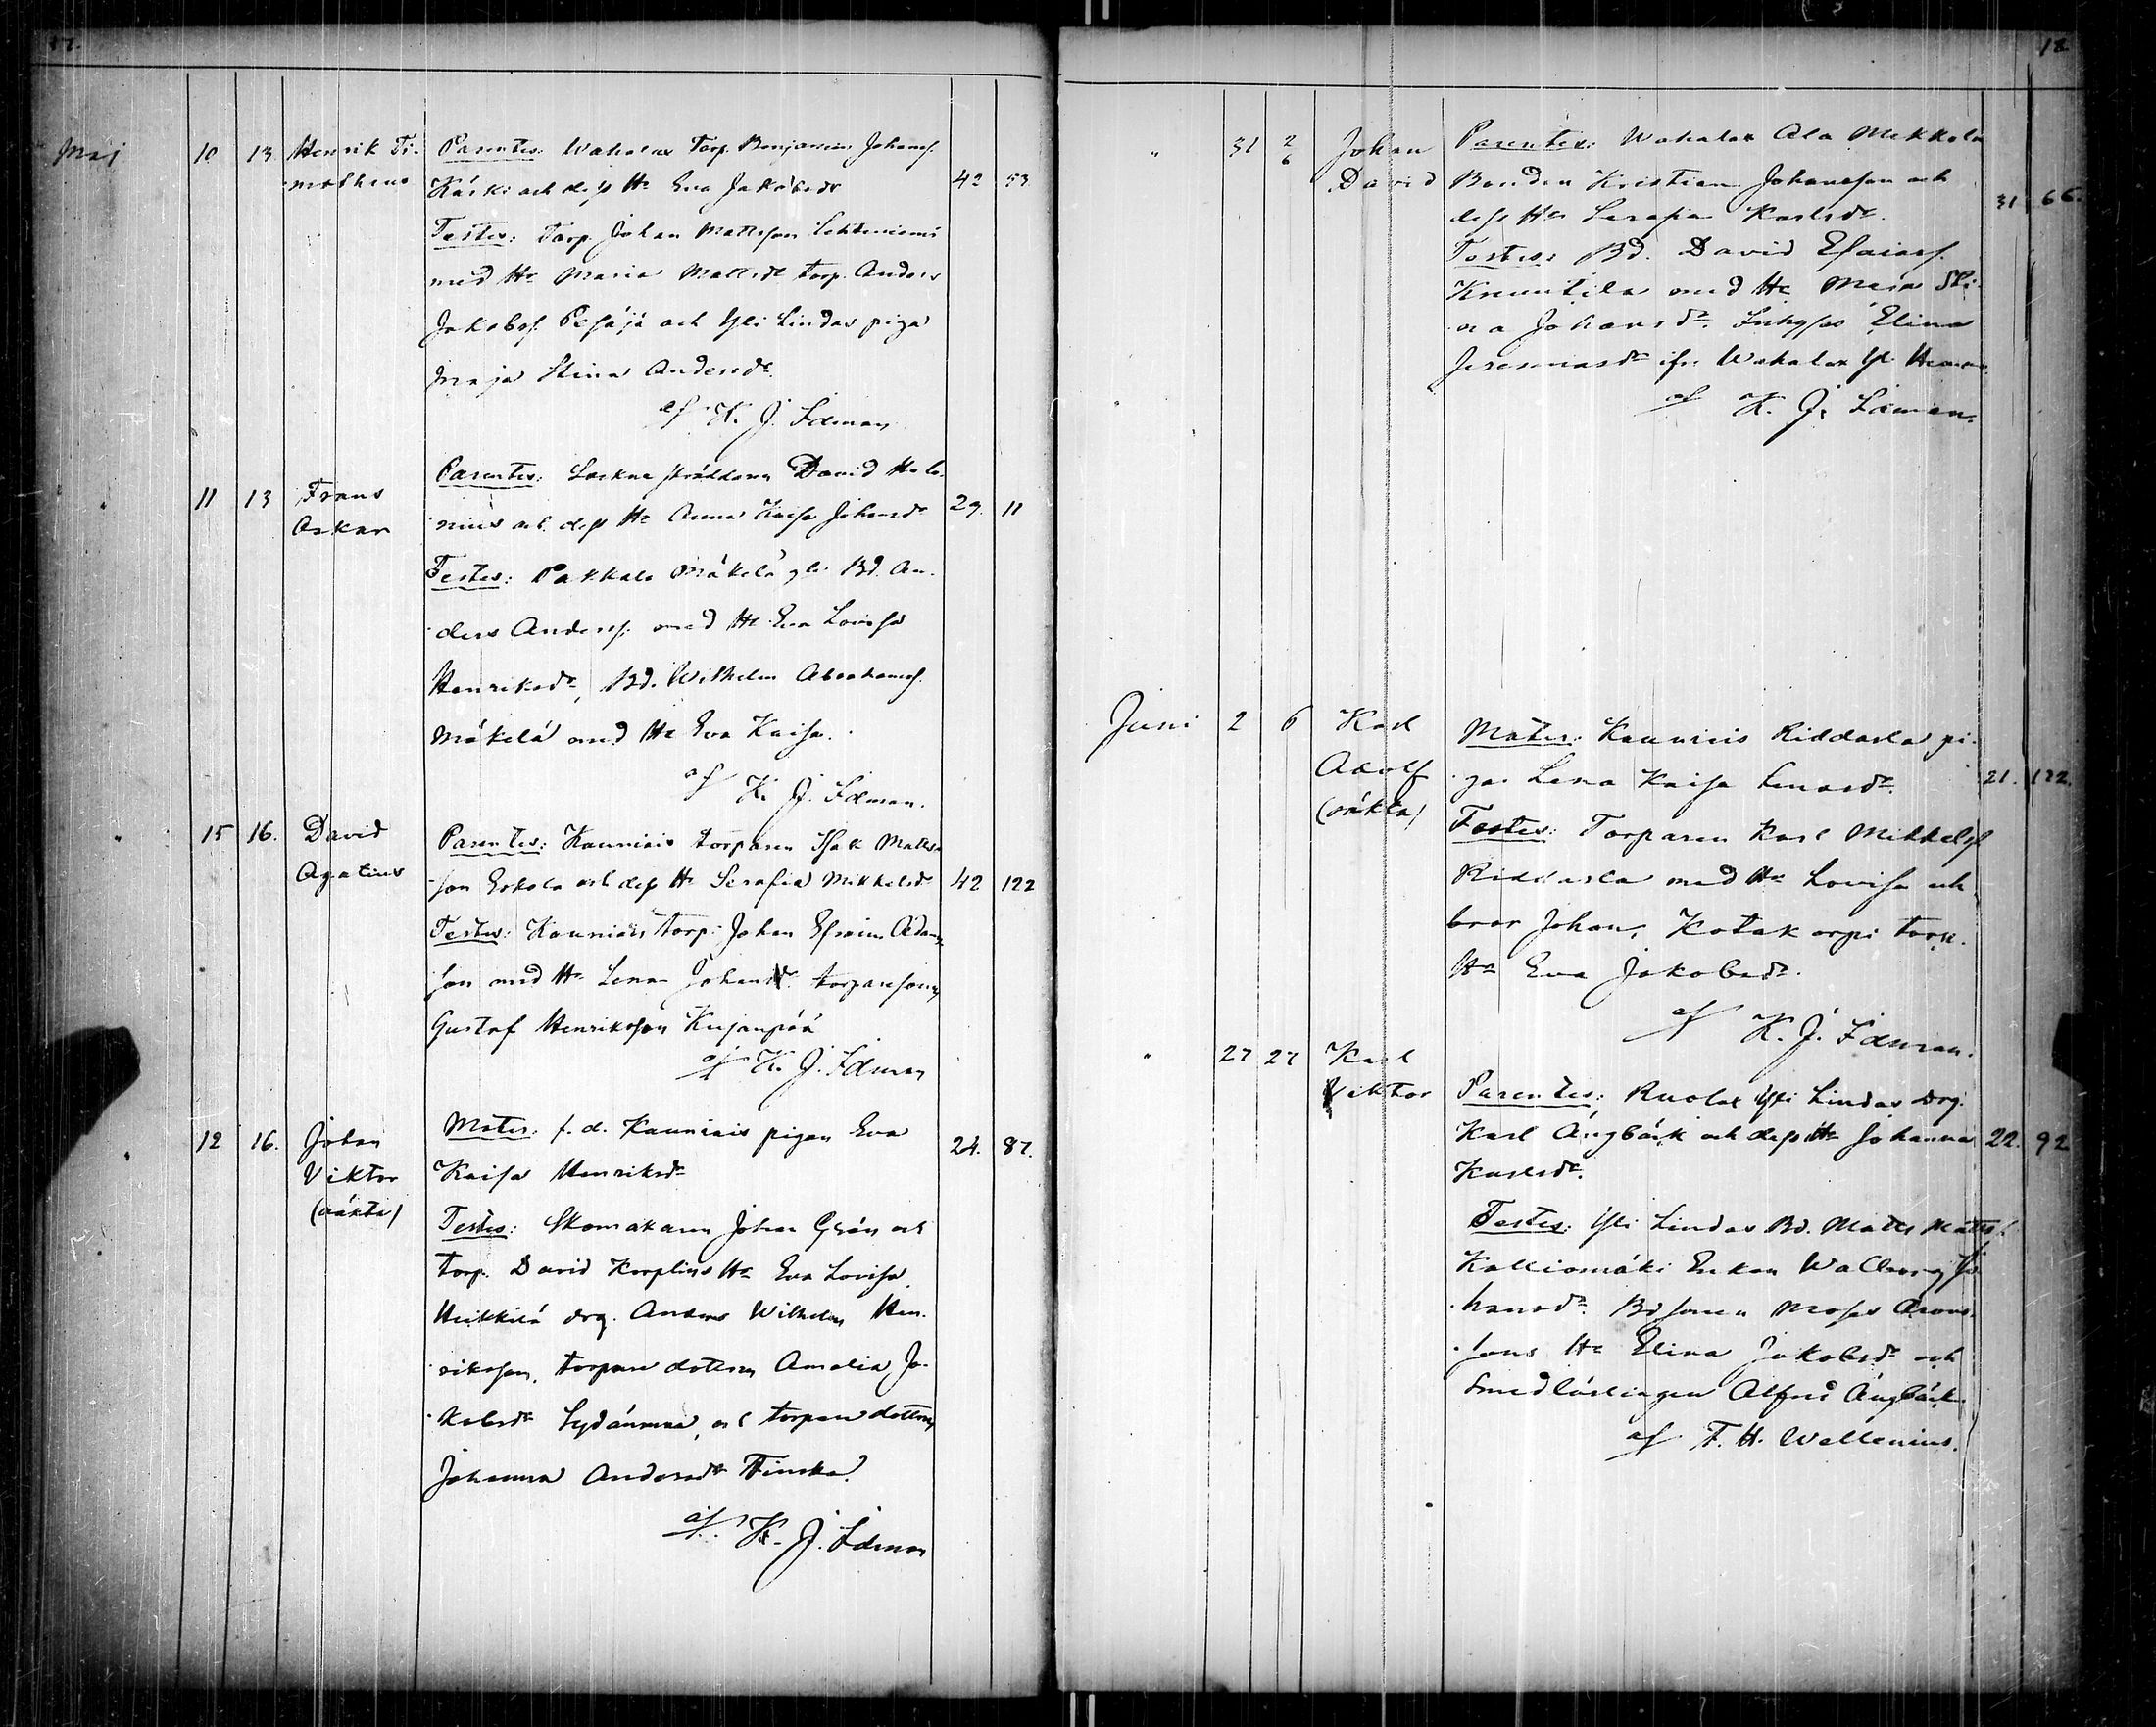 17.
Maj 10 13 Henrik Ti-
motheus
Parentes: Wahalax Torp. Benjamin Johans.
Käski och dess Hu Eva Jakobsdr 42 53
Testes: Torp. Johan Mattsson Lehteniemi
med Hu Maria Mattsdr torp. Anders
Jakobs. Pesäjä och Yli Lindas piga
Maja Stina Andersdr
af K. J. Idman
" 11 13 Frans
Oskar
Parentes: Sockne skräddaren David Hele-
nius och dess Hu Anna Kaisa Johansdr 29. 11
Testes: Pakkala Mäkelä yli Bd. An-
ders Anderss. med Hu Eva Lovisa
Henriksdr, Bd. Wilhelm Abrahams.
Mäkelä med Hu Eva Kaisa.
af K. J. Idman.
" 15 16. David
Agatius
Parentes: Kauniais torparen Isak Matts-
son Eskola och dess Hu Serafia Mikkelsdr 42 122
Testes: Kauniais torp. Johan Efraim Adams-
son med Hu Lena Johansdr torparesonen
Gustaf Henriksson Kujanpää
af K. J. Idman
" 12 16. Johan
Viktor
(oäkta)
Mater: f. d. Kauniais pigan Eva
Kaisa Henriksdr 24. 87.
Testes: Skomakaren Johan Grön och
torp. David Korplins Hu Eva Lovisa,
Heikkilä drg. Anders Wilhelm Hen-
riksson, torpare dottren Amalia Ja-
kobsdr Sydänmaa, och torpare dottren
Johanna Andersdr Finska.
af K. J. Idman
18
" 31 2
6
Johan
David
Parentes: Wahalax Ala Mekkola
Bonden Kristian Johansson och
dess Hu Serafia Karlsdr. 31 66.
Testes: Bd. David Esaias.
Kruutila med Hu Maja Sti-
na Johansdr. Inhyses Elina
Jeremiasdr ifr. Wahalax Yli
af K. J. Idman.
Juni 2 6 Karl
Adolf
(oäkta)
Mater: Kauniais Riddarla pi-
ga Lena Kaisa 21. 122.
Testes: Torparen Karl Mikkels.
Riddarla med Hu Lovisa och
bror Johan, Kotakorpi torp.
Hu Eva Jakobsdr.
af K. J. Idman.
" 27 27 Karl
Viktor
Parentes: Ruolax Yli Lindas drg.
Karl Ängbäck och dess Hu Johanna 22. 92
Karlsdr.
Testes: Yli Lindas Bd. Matts Matts.
Kalliomäki Enkan Walborg Jo-
hansdr. Bdsonen Moses Arons-
sons Hu Elina Jakobsdr och
Smedlärlingen Alfred Ängbäck.
af F. H. Wellenius.